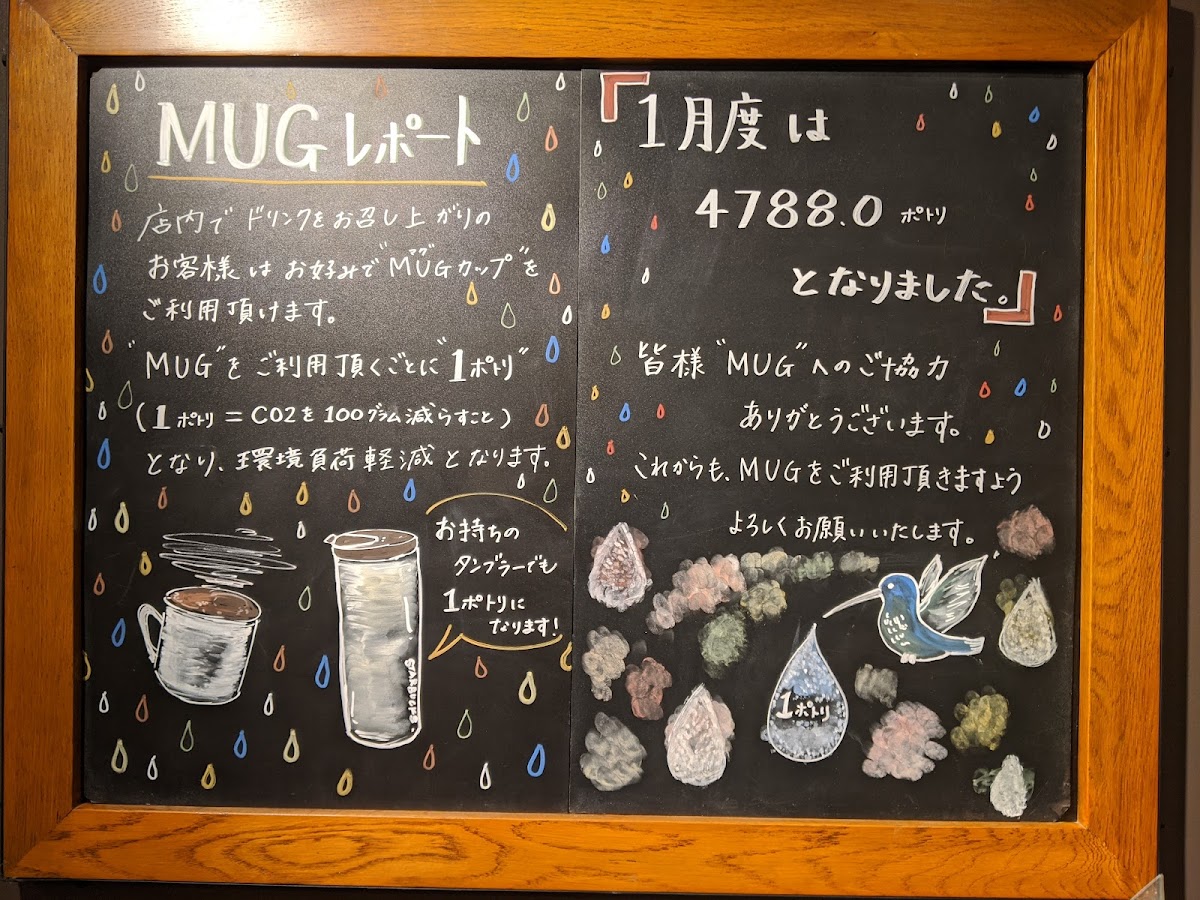 MUGレポート
店内でドリンクをお召し上がりの
お客様はお好みで"MUGカップ"を
マグ
ご利用頂けます。
"MUG"をご利用頂くごとに"1ポトリ"
(1ポトリ=CO2を100グラム減らすこと)
となり、環境負荷軽減となります。
お持ちの
タンブラーでも
1ポトリに
なります!
STARBUCKS
『1月度は
4788.0 ポトリ
となりました。』
皆様"MUG"へのご協力
ありがとうございます。
これからも、MUGをご利用頂きますよう
よろしくお願いいたします。
1ポトリ